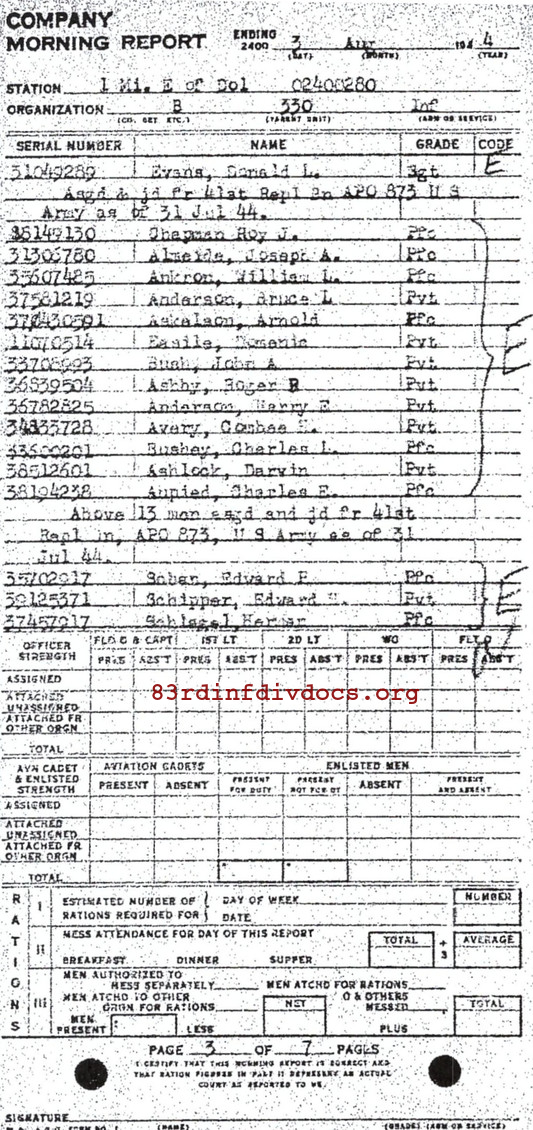 COMPANY
MORNING REPORT ENDING 2400 3 Aug 194 4
(DAY) (MONTH) (YEAR)
STATION 1 Mi. E of Dol 02400280
ORGANIZATION B 330 Inf
(CO. DET ETC.) (PARENT UNIT) (ARM OR SERVICE)
SERIAL NUMBER NAME GRADE CODE
31049289 Evans, Donald L. Sgt E
Asgd & jd fr 41st Repl Bn APO 873 U S
Army as of 31 Jul 44.
Chapman Roy J. Pfc
31306780 Almeida, Joseph A. Pfc
35607485 Ankron, William L. Pfc
37581219 Anderson, Bruce L Pvt
Askelson, Arnold Pfc
11070514 Basile, Domenic Pvt E
33708993 Bush, John A Pvt E
36839504 Ashby, Roger R Pvt
36782825 Anderson, Harry E Pvt
Avery, Combee H. Pvt
33600201 Bushey, Charles L. Pfc
38512601 Ashlock, Darwin Pvt
38194238 Aupied, Charles E. Pfc
Above 13 men asgd and jd fr 41st
Repl Bn, APO 873, U S Army as of 31
Jul 44.
35702917 Soban, Edward P. Pfc E
39125371 Schipper, Edward H. Pvt
37457917 Schlagel, Pfc
OFFICER STRENGTH FLD O & CAPT 1ST LT 2D LT WO FLT O
PRES ABS'T PRES ABS'T PRES ABS'T PRES ABS'T PRES ABS'T
ASSIGNED
ATTACHED UNASSIGNED
ATTACHED FR OTHER ORGN
TOTAL
83rdinfdivdocs.org
AVN CADET & ENLISTED STRENGTH AVIATION CADETS ENLISTED MEN
PRESENT ABSENT PRESENT FOR DUTY PRESENT NOT FOR DY ABSENT PRESENT AND ABSENT
ASSIGNED
ATTACHED UNASSIGNED
ATTACHED FR OTHER ORGN
TOTAL
RATIONS
I ESTIMATED NUMBER OF DAY OF WEEK NUMBER
RATIONS REQUIRED FOR DATE
II MESS ATTENDANCE FOR DAY OF THIS REPORT TOTAL ÷ 3 AVERAGE
BREAKFAST DINNER SUPPER
III MEN AUTHORIZED TO MESS SEPARATELY MEN ATCHD FOR RATIONS
MEN ATCHD TO OTHER ORGN FOR RATIONS NET O & OTHERS MESSED TOTAL
MEN PRESENT LESS PLUS
PAGE 3 OF 7 PAGES
I CERTIFY THAT THIS MORNING REPORT IS CORRECT AND
THAT RATION FIGURES IN PART II REPRESENT AN ACTUAL
COUNT AS REPORTED TO ME.
SIGNATURE
(NAME) (GRADE) (ARM OR SERVICE)